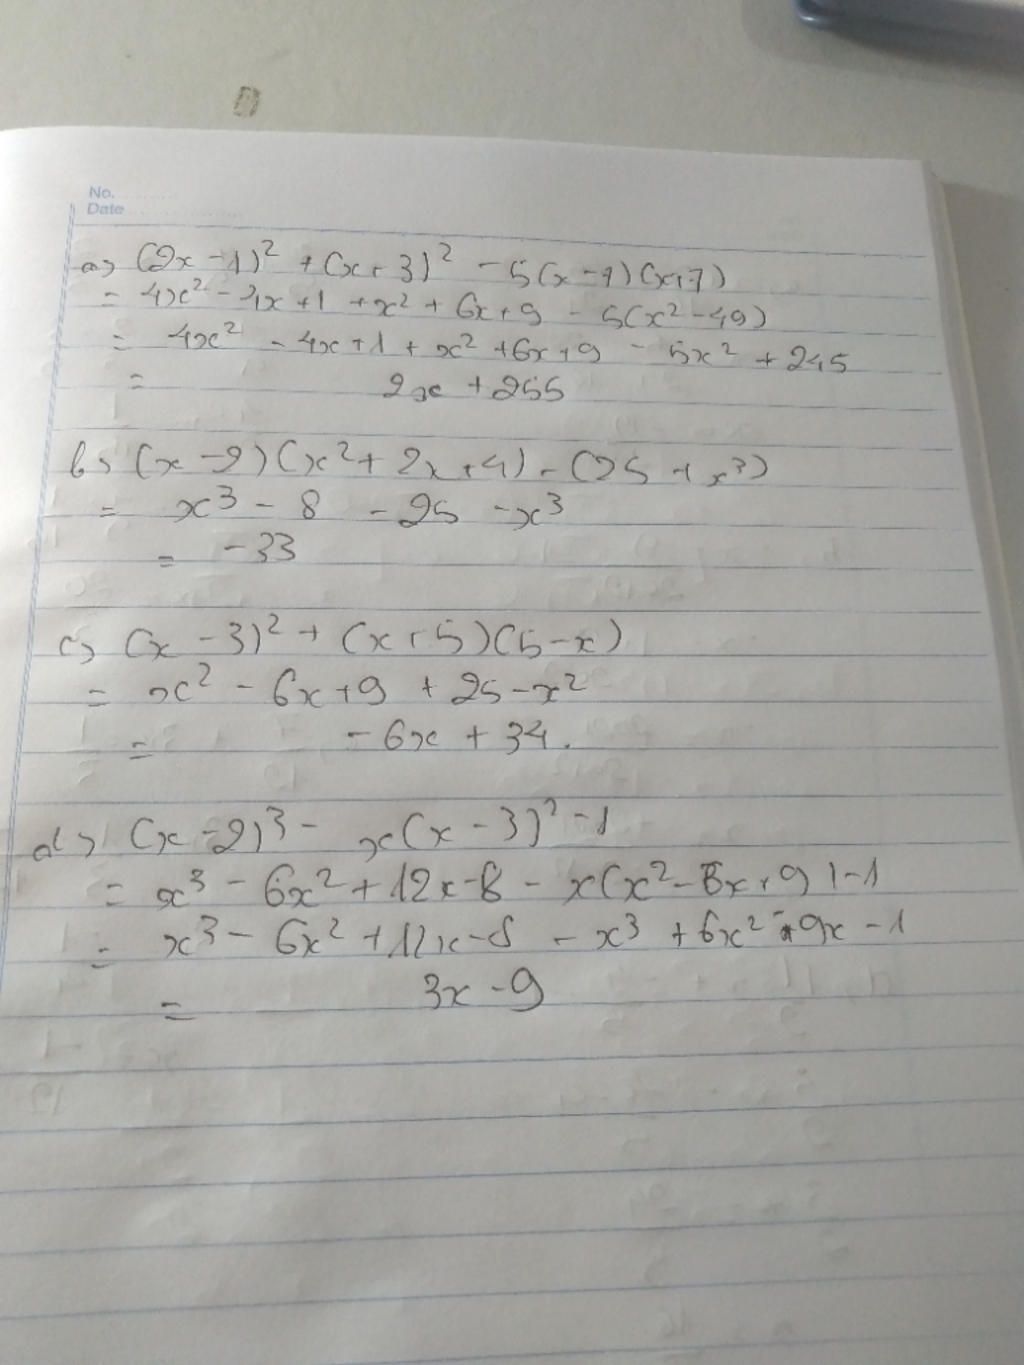 No.
Date
a) (2x - 1)² + (x + 3)² - 5(x - 7)(x+7)
= 4x² - 4x + 1 + x² + 6x + 9 - 5(x² - 49)
= 4x² - 4x + 1 + x² + 6x + 9 - 5x² + 245
= 2x + 255
b) (x - 2)(x² + 2x + 4) - (25 + x³)
= x³ - 8 - 25 - x³
= -33
c) (x - 3)² + (x + 5)(5 - x)
= x² - 6x + 9 + 25 - x²
= - 6x + 34.
d) (x - 2)³ - x(x - 3)² - 1
= x³ - 6x² + 12x - 8 - x(x² - 6x + 9) - 1
= x³ - 6x² + 12x - 8 - x³ + 6x² - 9x - 1
= 3x - 9